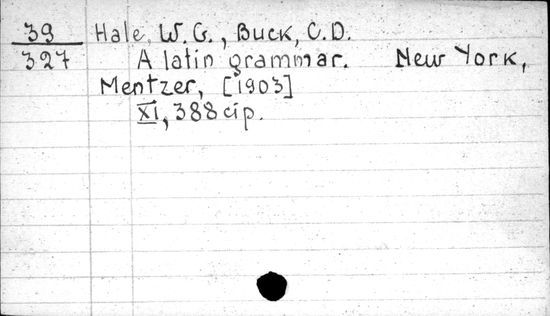 39 Hale W. G., Buck, C.D.
327 A latin grammar. New York,
Mentzer, [1903]
XI, 388 с.